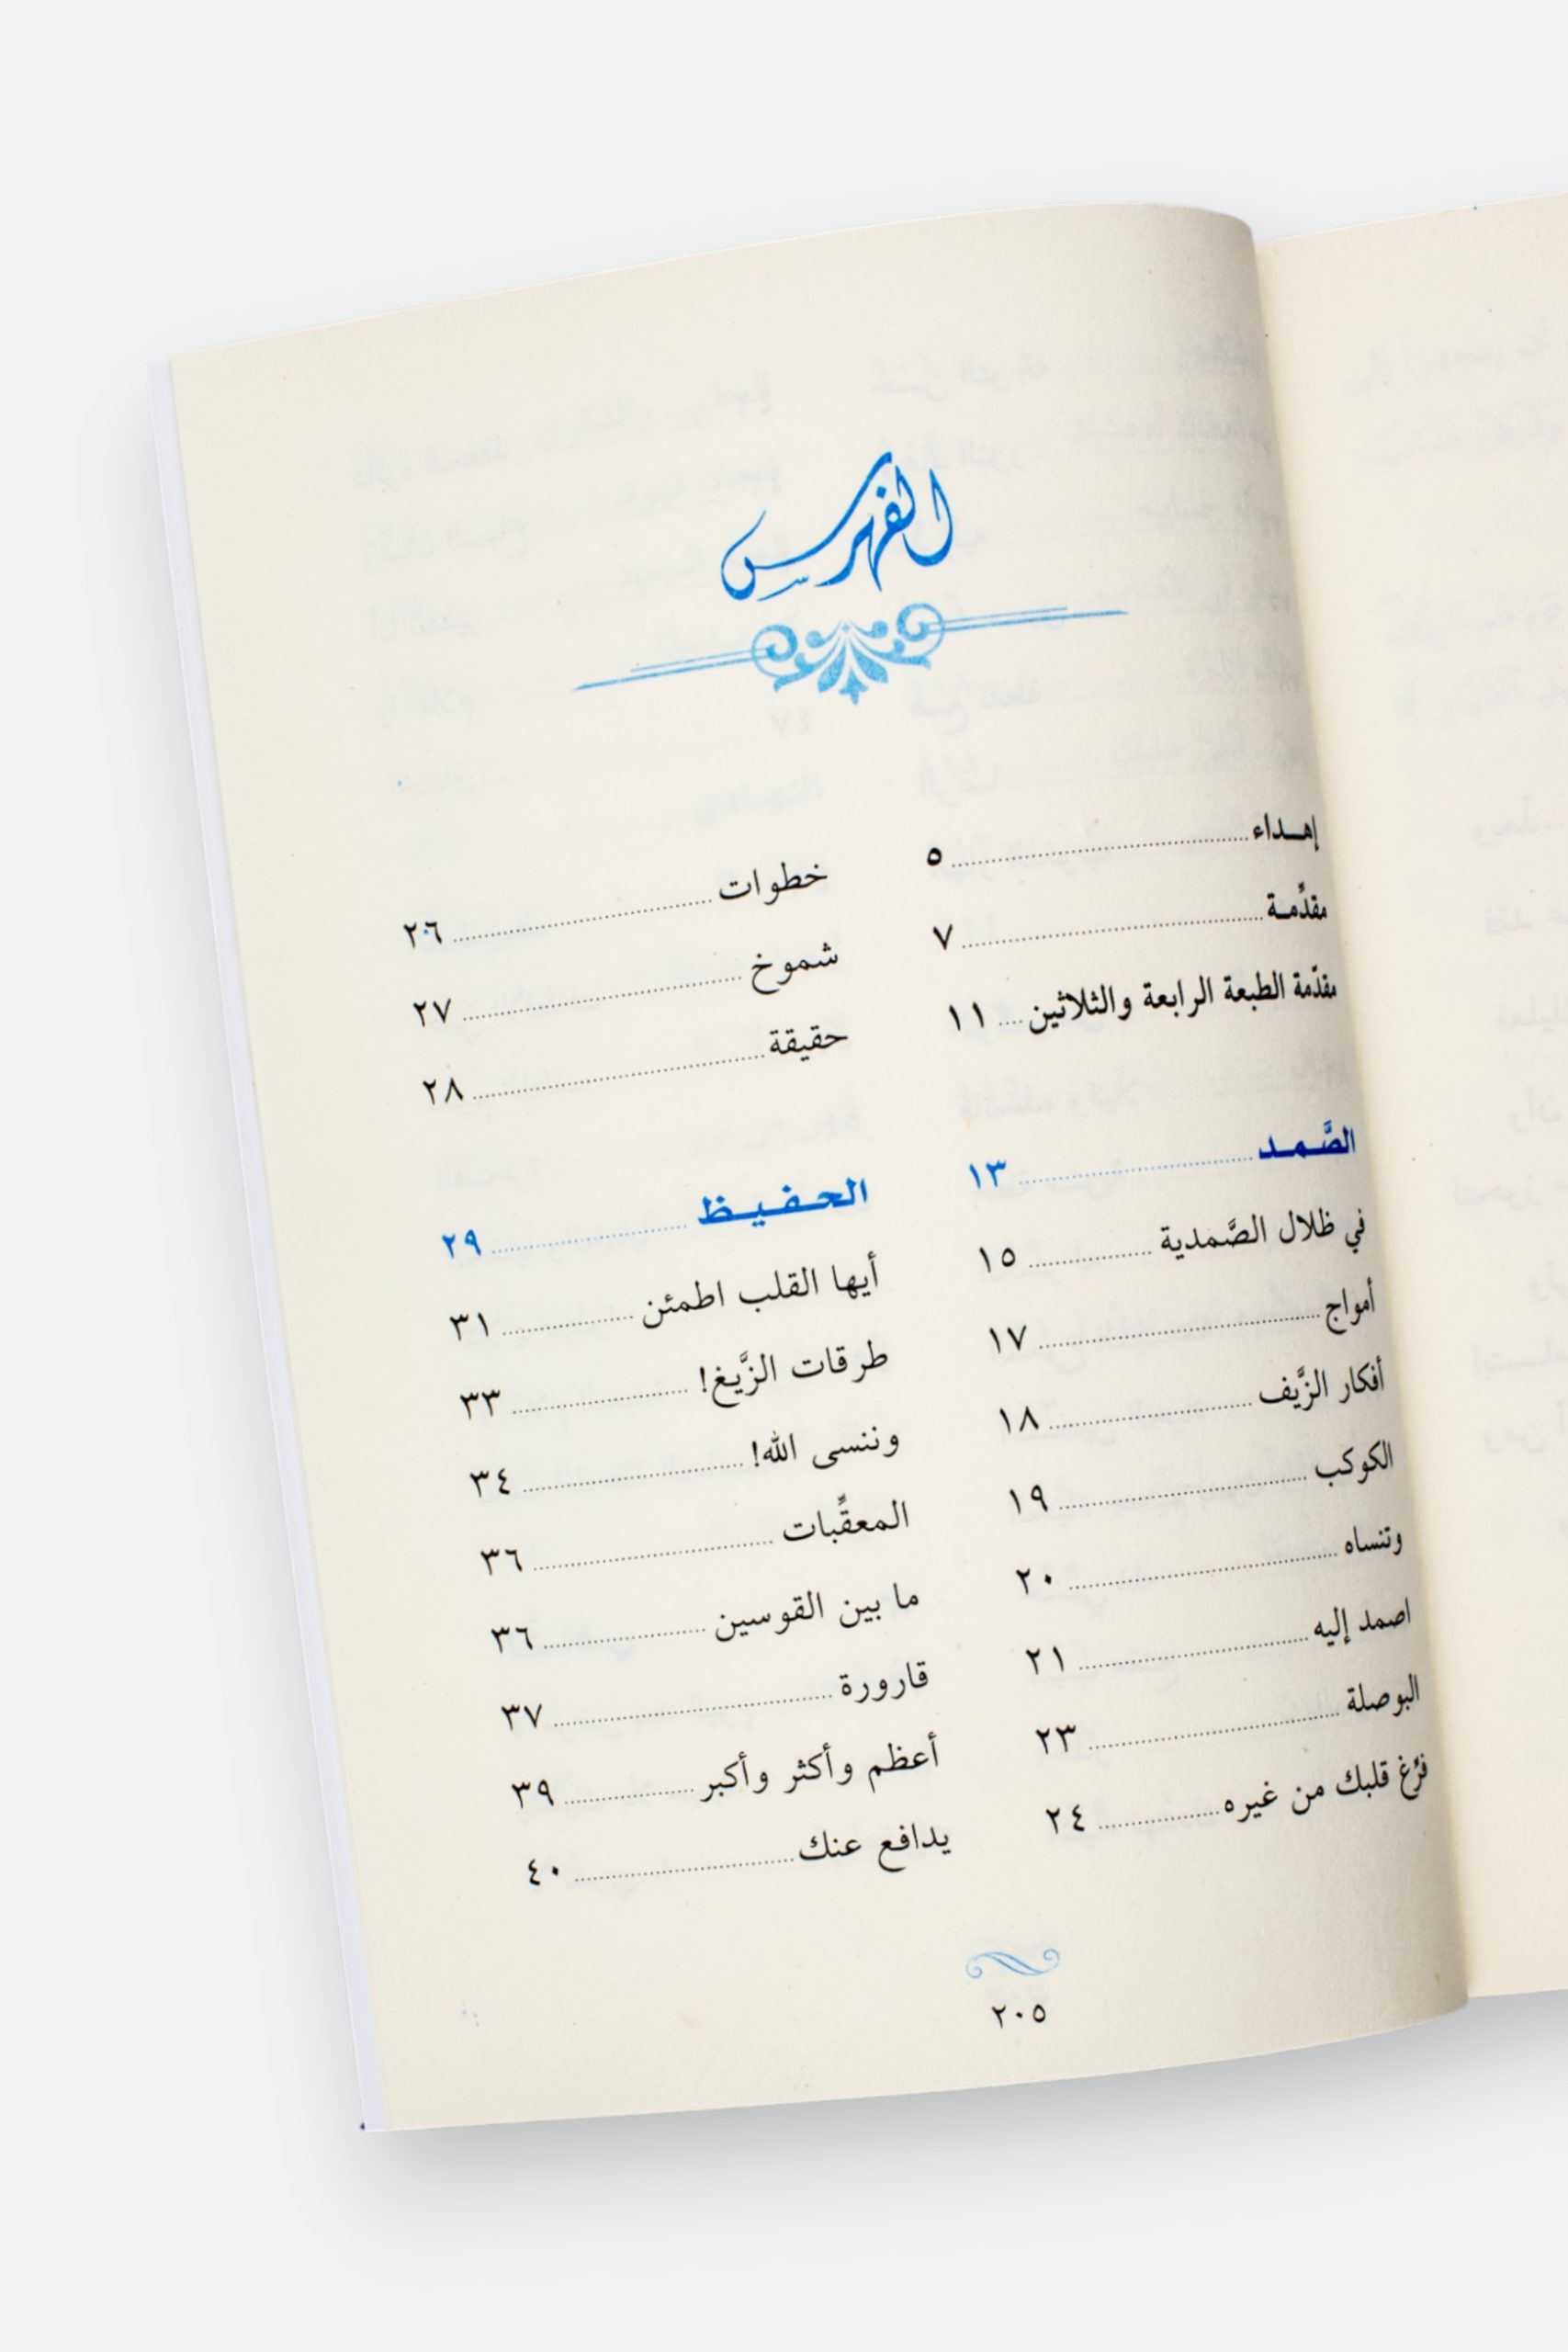 الفهرس
إهـداء ٥
مقدِّمـة ٧
مقدّمة الطبعة الرابعة والثلاثين ١١
الصَّمـد ١٣
في ظلال الصَّمدية ١٥
أمواج ١٧
أفكار الزَّيف ١٨
الكوكب ١٩
وتنساه ٢٠
اصمد إليه ٢١
البوصلة ٢٣
فرِّغ قلبك من غيره ٢٤
خطوات ٢٦
شموخ ٢٧
حقيقة ٢٨
الحـفـيـظ ٢٩
أيها القلب اطمئن ٣١
طرقات الزَّيغ! ٣٣
وننسى الله! ٣٤
المعقِّبات ٣٦
ما بين القوسين ٣٦
قارورة ٣٧
أعظم وأكثر وأكبر ٣٩
يدافع عنك ٤٠
٢٠٥